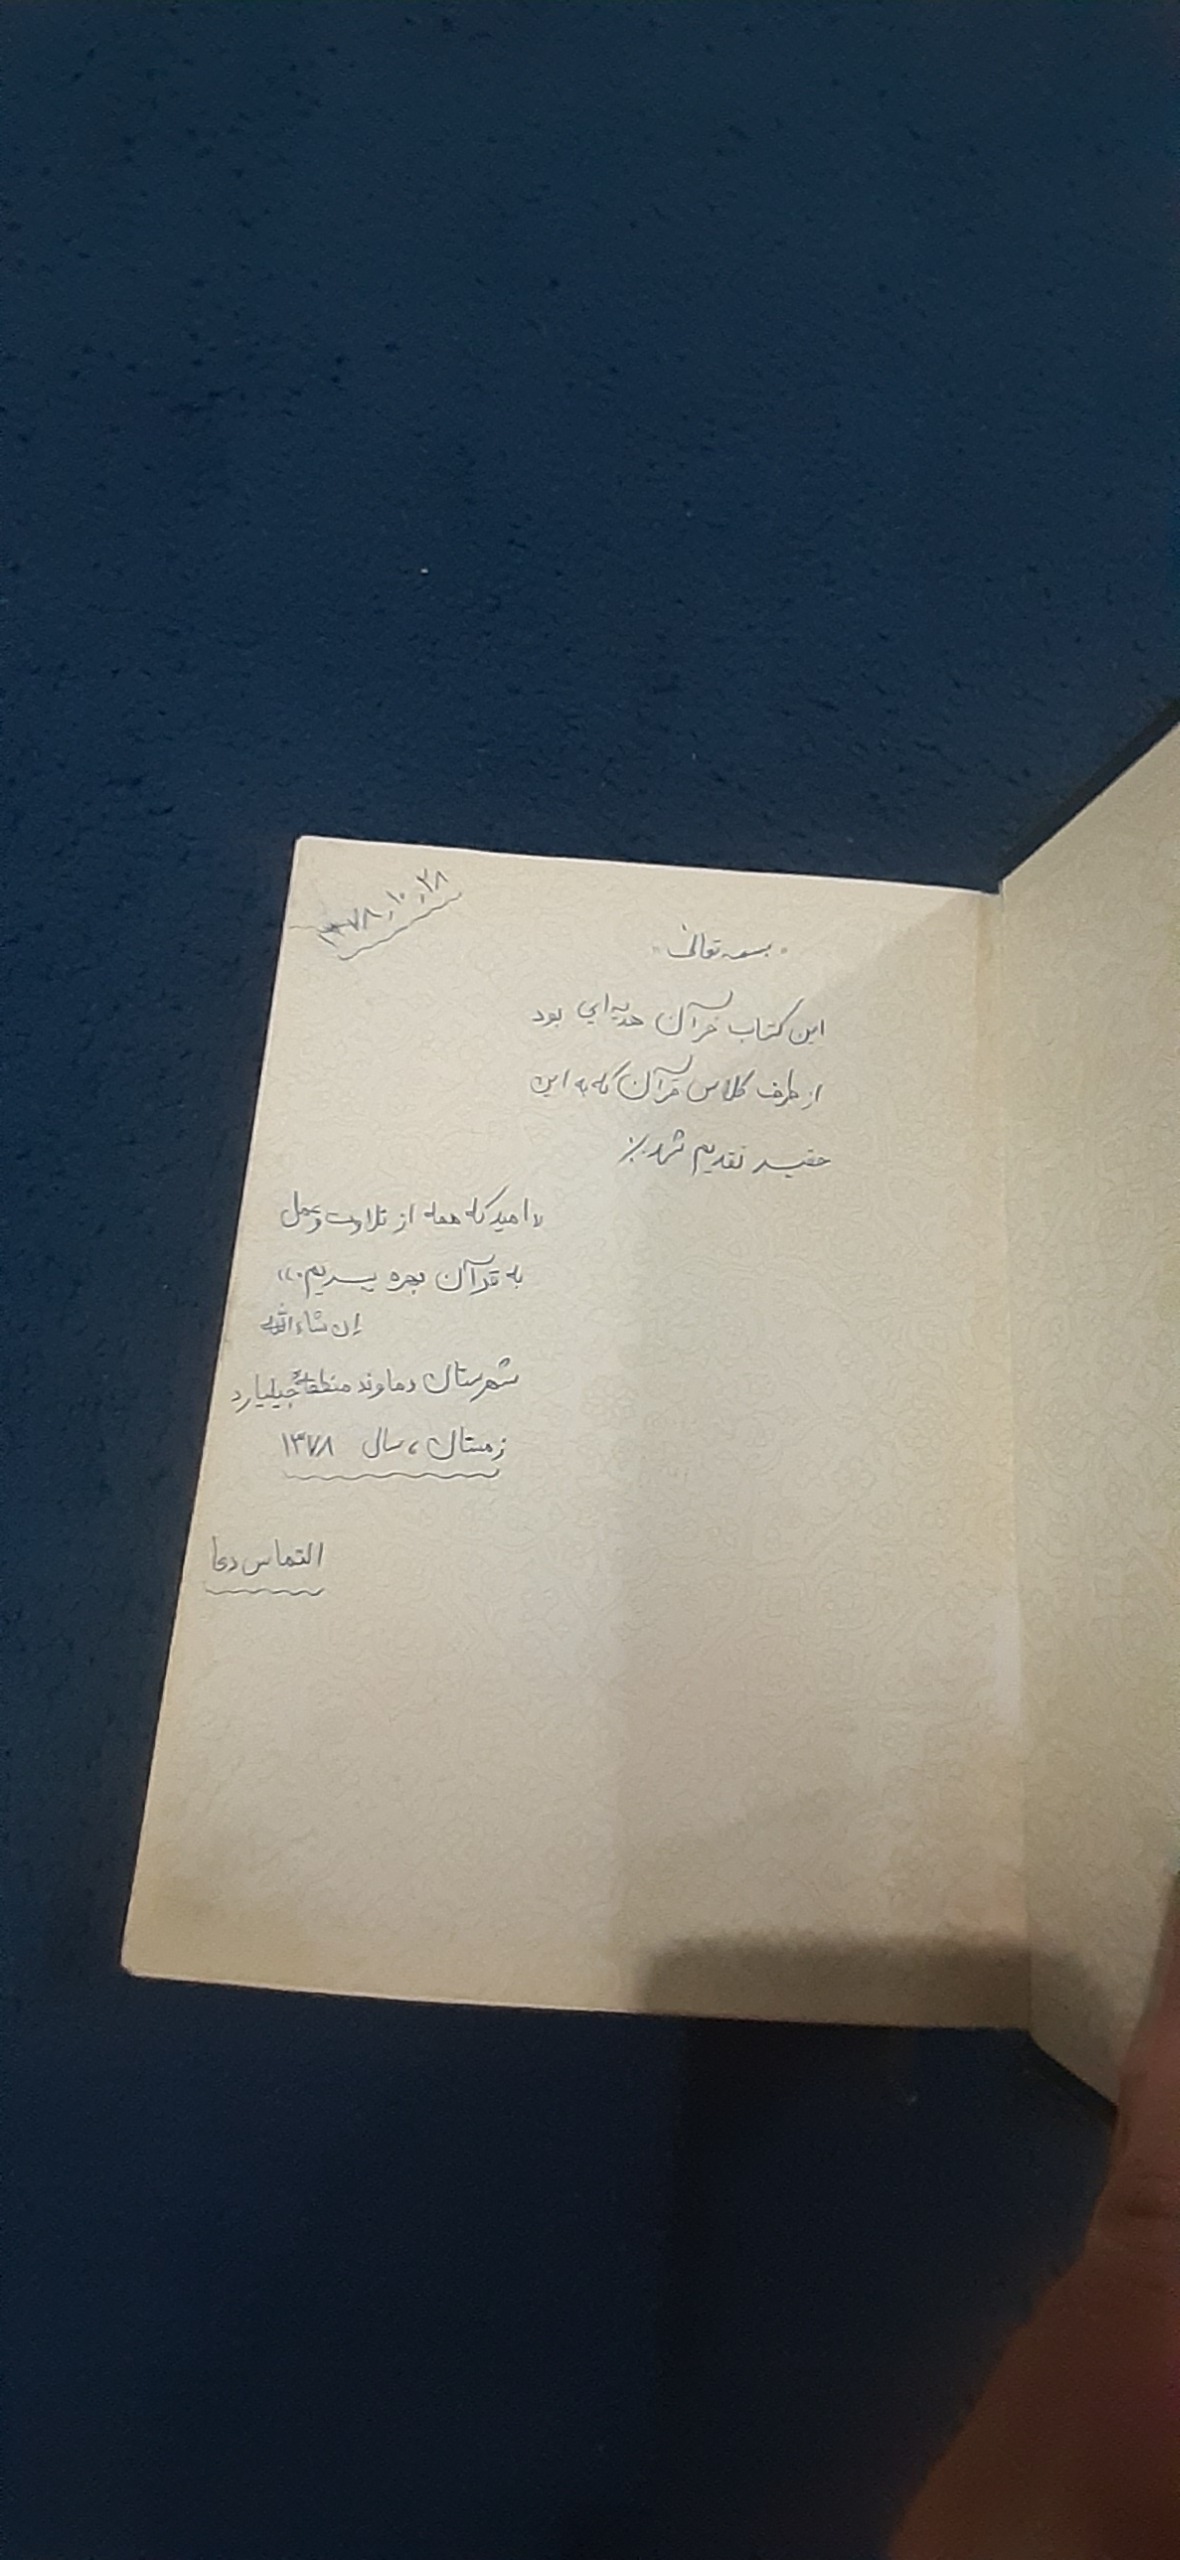 ۱۳۷۸٫۱۰٫۲۸
« بسمه تعالی »
این کتاب قرآن هدیه‌ایی بود
از طرف کلاس قرآن که به این
حقیر تقدیم شد ٪
«امید که همه از تلاوت و عمل
به قرآن بهره ببریم.»
إن شاءالله
شهرستان دماوند منطقهٔ جیلیارد
زمستان ، سال ۱۳۷۸
التماس دعا